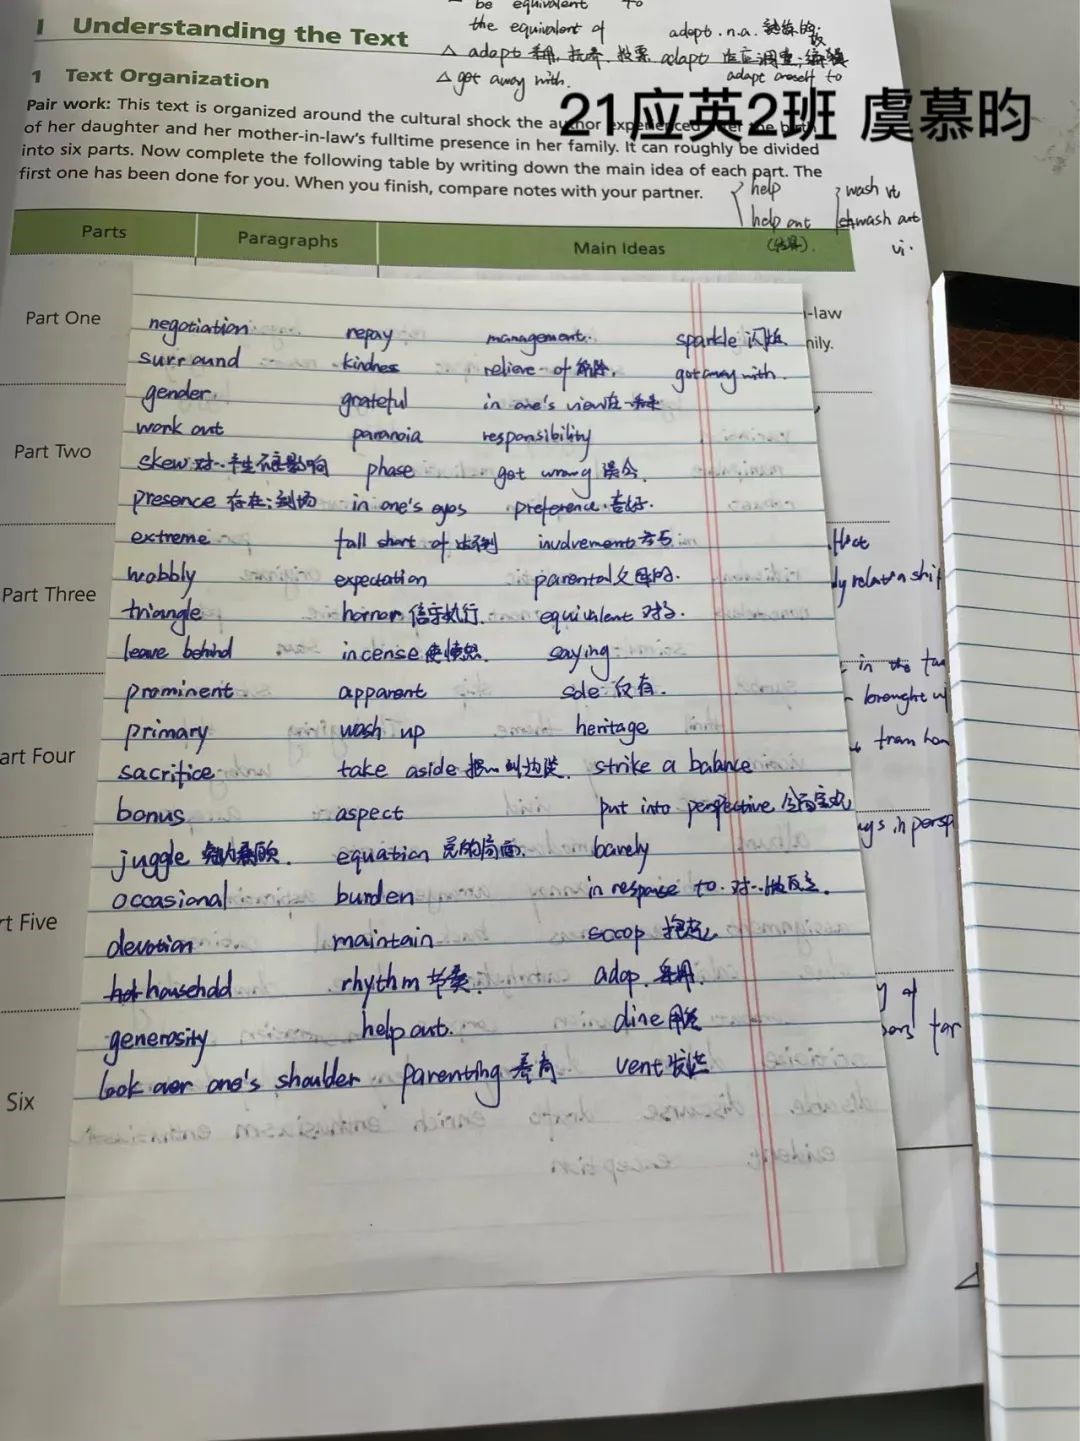 be equivalent to
the equivalent of
adopt . n.a.
△ adopt 采用. 抚养. 投票 adapt 适应调整; 编辑
△ get away with. adapt oneself to
I Understanding the Text
1 Text Organization
21应英2班 虞慕昀
Pair work: This text is organized around the cultural shock the author experienced after the birth
of her daughter and her mother-in-law's fulltime presence in her family. It can roughly be divided
into six parts. Now complete the following table by writing down the main idea of each part. The
first one has been done for you. When you finish, compare notes with your partner.
help wash vt
help out wash out
vi.
Parts Paragraphs Main Ideas
Part One
-law
nily.
negotiation repay management. sparkle 闪烁
surround kindness relieve of 解除. get away with.
gender grateful in one's view
work out paranoia responsibility
Part Two
skew 对…产生不良影响 phase get wrong 误会.
presence 存在; 到场 in one's eyes preference. 喜好.
extreme fall short of 达不到 involvement 参与
Part Three
wobbly expectation parental 父母的.
triangle horror 信守执行. equivalent 对等.
leave behind incense 使愤怒. saying
in the
brought
prominent apparent sole 仅有.
primary wash up heritage
art Four
sacrifice take aside 把…叫到边谈. strike a balance
bonus aspect put into perspective 全面客观
juggle equation barely
occasional burden in response to. 对…做反应.
rt Five
devotion maintain scoop 抱起
household rhythm 节奏. adop. 采用.
generosity help out. dine 用餐
look over one's shoulder parenting 养育 vent 发泄
Six